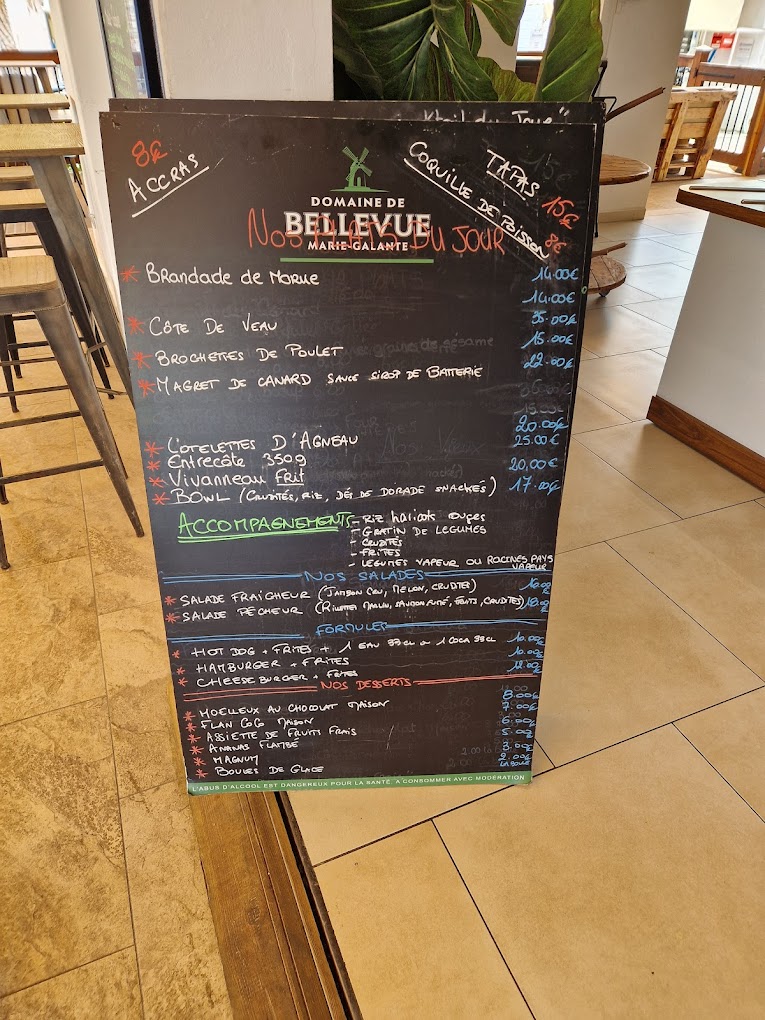 Khit du Jour"
8€
ACCRAS
TAPAS 15€
COQUILLE DE POISSON 8€
DOMAINE DE
BELLEVUE
MARIE-GALANTE
NOS PLATS DU JOUR
* BRANDADE DE MORUE 14.00€
14.00€
* CÔTE DE VEAU 35.00€
* BROCHETTES DE POULET 15.00€
* MAGRET DE CANARD SAUCE SIROP DE BATTERIE 22.00€
* COTELETTES D'AGNEAU 20.00€
* Entrecôte 350g 25.00€
* Vivanneau Frit 20,00€
* BOWL (CRUDITÉS, RIZ, DÉS DE DORADE SNACKÉS) 17.00€
ACCOMPAGNEMENTS - Riz haricots rouges
- GRATIN DE LEGUMES
- CRUDITÉS
- FRITES
- LEGUMES VAPEUR OU RACINES PAYS
VAPEUR
NOS SALADES
* SALADE FRAÎCHEUR (JAMBON CRU, MELON, CRUDITES)
* SALADE PÊCHEUR (RILLETTES MARLIN, SAUMON FUMÉ, CRUDITES)
FORMULES
* HOT DOG + FRITES + 1 EAU 33CL OU 1 COCA 33CL 10.00€
* HAMBURGER + FRITES 10.00€
* CHEESEBURGER + FRITES 12.00€
NOS DESSERTS
* MOELLEUX AU CHOCOLAT MAISON 8.00€
* FLAN COCO MAISON 7.00€
* ASSIETTE DE FRUITS FRAIS 6.00€
* ANANAS FLAMBÉ 5.00€
* MAGNUM 3.00€
* BOULES DE GLACE 2.00€
LA BOULE
L'ABUS D'ALCOOL EST DANGEREUX POUR LA SANTÉ. A CONSOMMER AVEC MODERATION